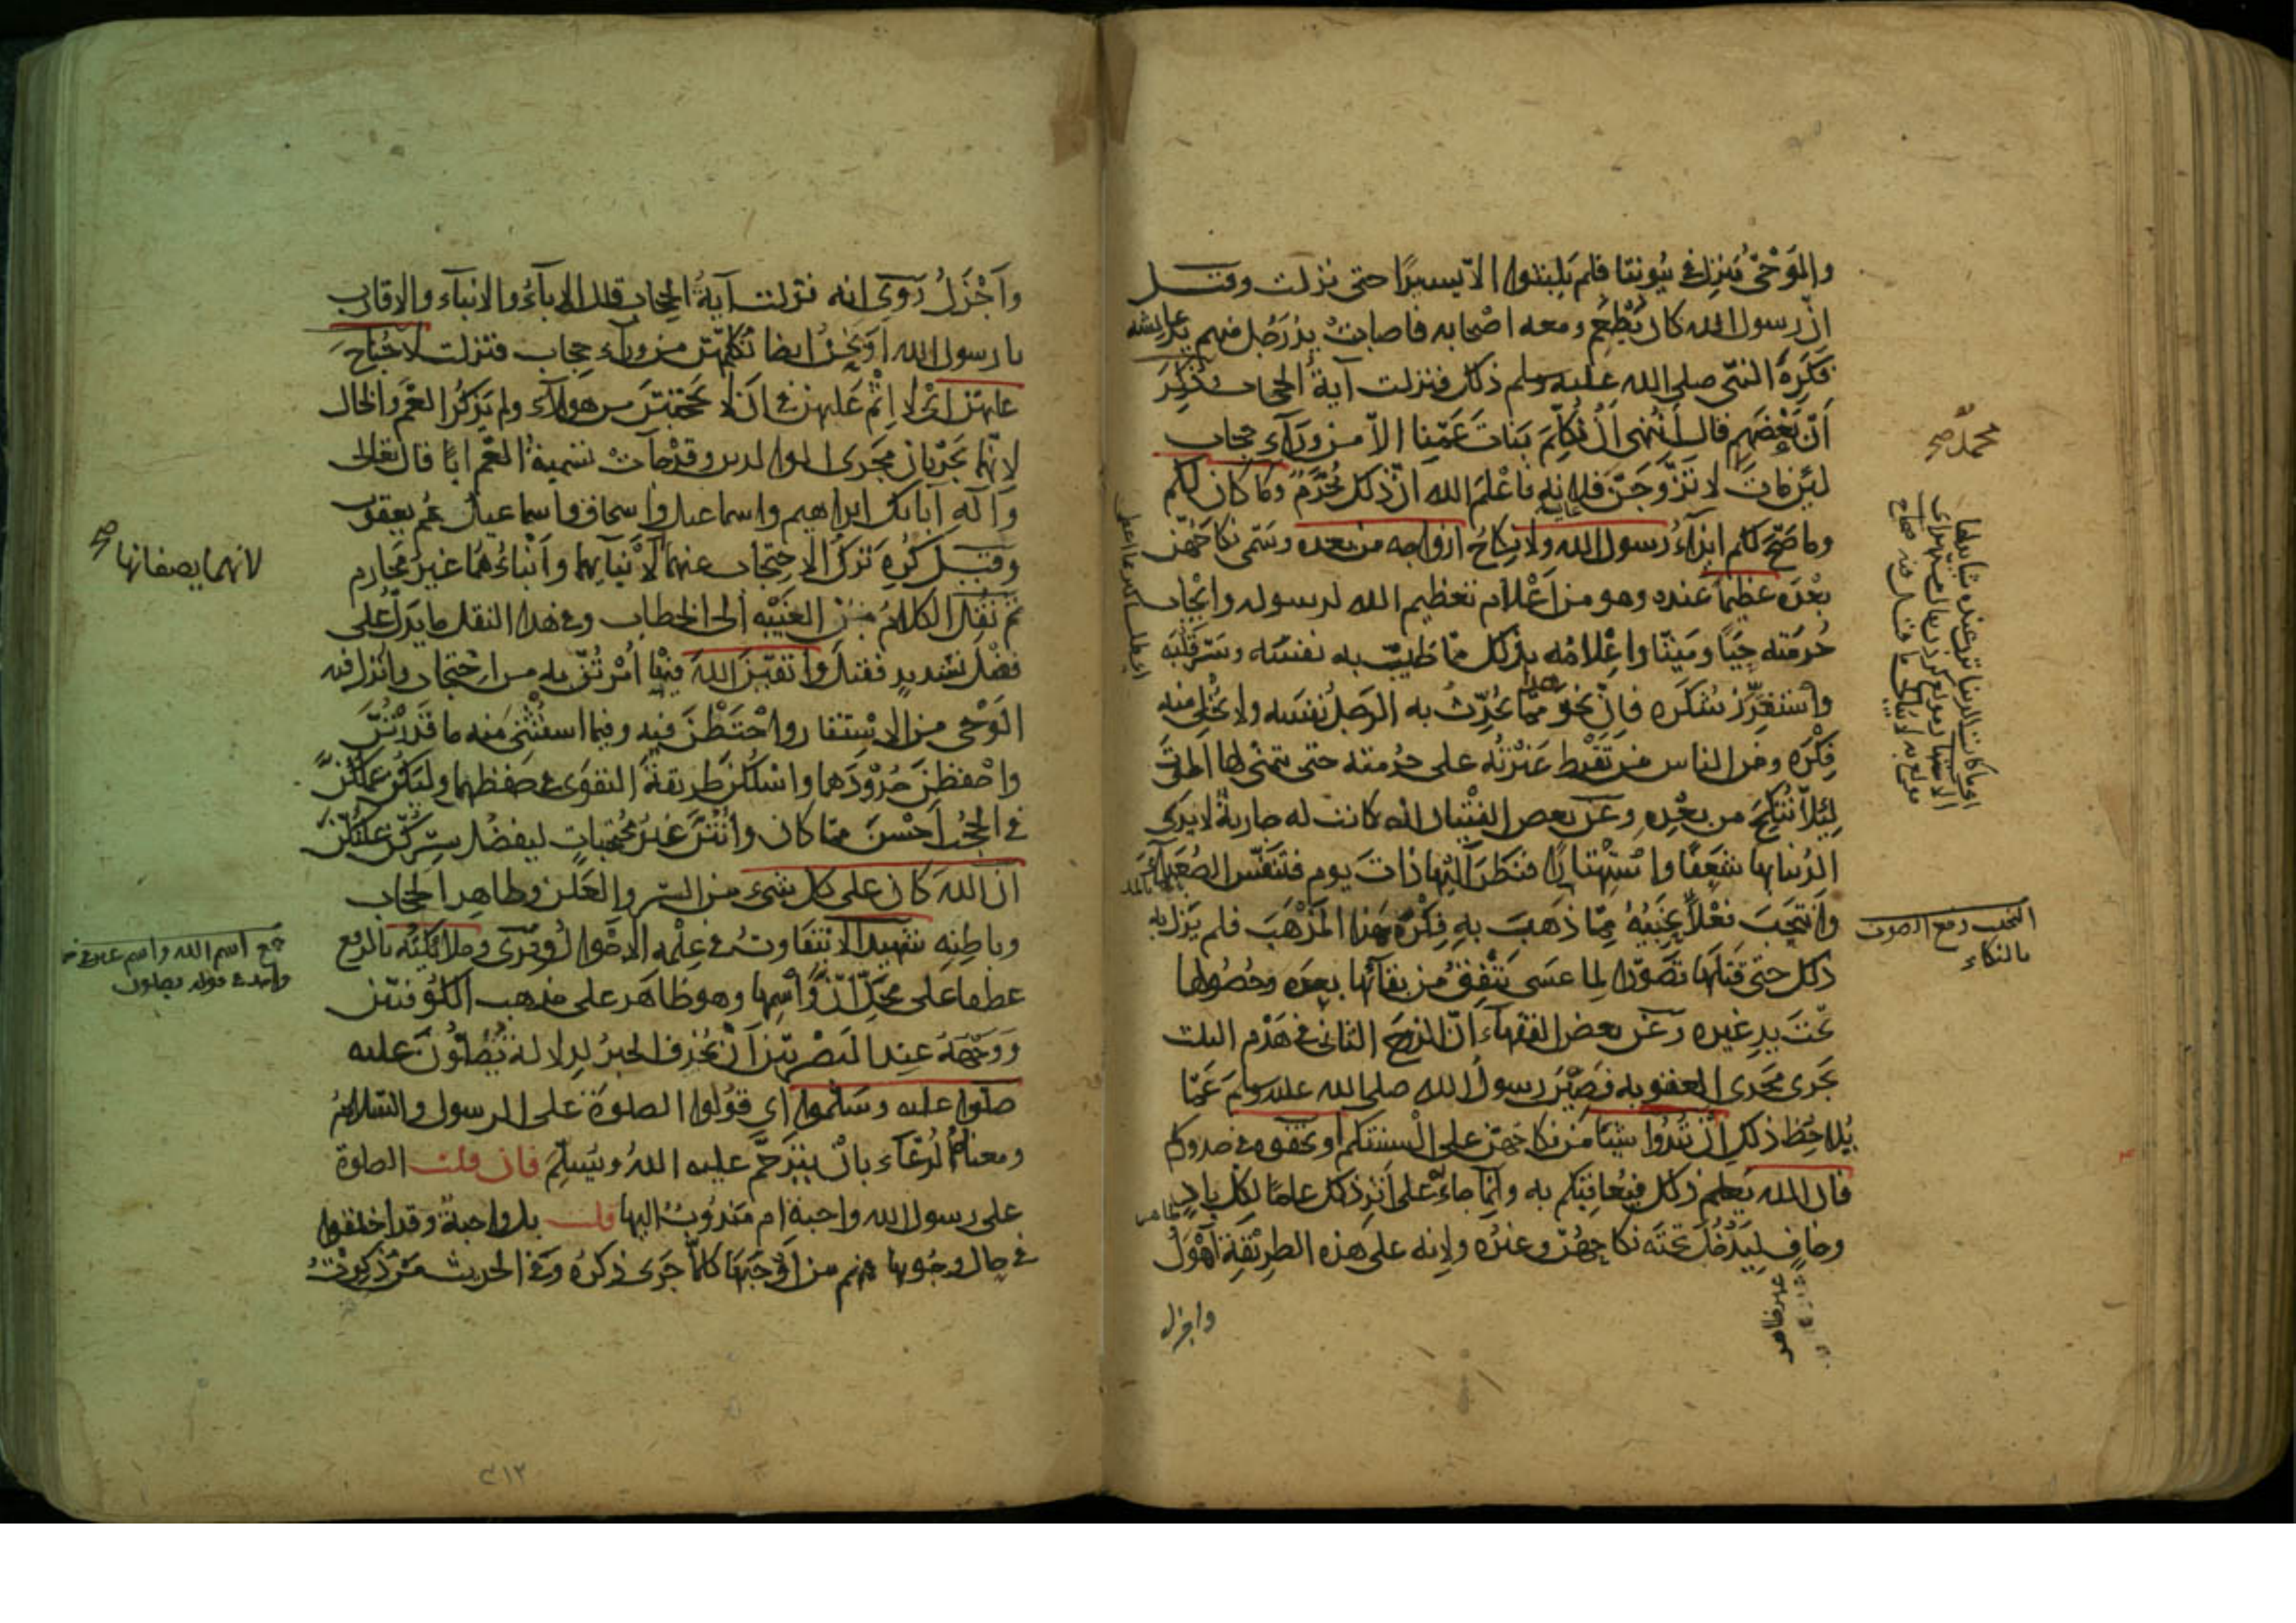 والوَحْىُ يُنزَل فى بُيُوتنا فلم يَلبثوا الا يسيرًا حتى نزلت وقيل
انّ رسول الله كان يُطْعِم ومعه اصحابه فاصابتْ يدُ رَجُل منهم يد عايشه
فكَرِهَ النبىّ صلى الله عليه وسلم ذلك فنزلت آيةُ الحجاب وذُكِرَ
اَنّ بَعْضَهم قال أَنُنْهى أَنْ نُكَلِّمَ بَنَاتَ عَمّنا الاّ من ورَآءِ حجاب
لئن مات لاتزوّجَنّ فلانه فاَعْلَمَ الله انّ ذلك مُحَرَّمٌ وما كان لكم
وما صَحّ لكم ايذآءُ رسول الله ولا نِكاحُ ازواجه من بعده وسَمّى نكاحَهُنّ
بَعْدَه عظيمًا عنده وهو من اَعْلام تعظيم الله لرسوله وايْجاب
حُرمَته حَيًا ومَيّتًا واِعْلامُه بذلك ممّا طَيّبَ به نفسَه وسَرّ قَلْبَه
واسْتَغزَر شكرَه فاِنّ نحو هذا ممّا يُحَدِّثُ به الرجلُ نفسَه ولا يُخْلى منه
فِكْرَه ومن الناس من تَفْرط غَيْرتُه على حُرمته حتى يتمنّى لها الموتَ
لِئلاّ تُنكَحَ من بعْدِه وعن بعض الفتيان انه كانت له جاريةٌ لا يَرى
الدُنيا بها شَعَفًا واسْتِهْتارًا فنظَرَ اليْها ذاتَ يوم فتنَفّس الصُعَدآء
وانتَحَبَ فعَلا نحِيبُهُ ممّا ذَهبَ به فِكْرُه هذا المَذْهَبَ فلم يَزل به
ذلك حتى قتلَها تصَوّرًا لِما عسَى يَتّفِقُ من بقآئها بعده وحُصُولها
تحتَ يدِ غيره وعَن بعض الفقهآء انّ الزوجَ الثانى فى هَدْم الثلث
يَجرى مَجْرى العقوبه فصِيْنَ رسولُ الله صلى الله عليه وسلم عَمّا
يُلاحِظ ذلك اِنْ تُبْدُوا شيئا من نكاحهنّ على السِنَتكم او تخفوه فى صدوركم
فان الله يَعلم ذلك فيُعاقبكم به وانّما جاءَ على اثر ذلك عامًا لِكل بادٍ
وخافٍ ليَدْخُل تحتَه نكاحهُنّ وغيْره ولانه على هذه الطريقةِ اَهْوَلُ
محمد صح
النحب رفع الصوت
بالبكاء
ظاهر
واجزل
واَجْزَلُ رُوِىَ انه نزلت آيةُ الحجاب قال الابآءُ والابناء والاقارب
يا رسول الله اَوَنَحنُ ايضا نُكلّمهُنّ من ورآء حجاب فنزلت لا جُناحَ
عليهنّ اى لا اِثْمَ عَليهنّ فى ان لا يَحتجبْنَ من هولآء ولم يَذكُر العَمّ والخال
لانّهما يَجْريان مَجْرى الوالدين وقد جآت تسميةُ العمّ ابًا قال تعالى
وآله آبائك ابراهيم واسماعيل واسحاق واسماعيل عَمُ يعقوب
وقيل كُرِهَ تَركُ الاحتجاب عنهما لانّهما يصفانها لابْنآئهما وابْناءُهُما غيرُ مَحارم
ثمّ نُقِل الكلامُ من الغَيْبه الى الخطاب وفى هذا النقل ما يَدلّ على
فضْل تشديدٍ فقيل واتّقينَ الله فيما اُمْرتُنّ به من الاحتجاب وانزل فيه
الوَحْى من الاستتار واحْتَطْنَ فيه وفيما اسْتُثْنِى منه ما قَدَرتُنّ
واحْفظنَ حُدُوْدَهما واسْلكْنَ طريقةَ التقوى فى حفظهما وليكن عَمَلُكُنّ
فى الحجْب اَحْسنَ ممّا كان وانتُنّ غيْرُ مُحَجّباتٍ ليفضُل سِرُّكُنّ عَلنَكُنّ
ان الله كان على كل شىء من السّر والعَلن وظاهرِ الحجاب
وباطِنِه شهيدًا لا يَتفَاوتُ فى عِلْمه الاحْوالُ وقرى وملائكتُه بالرفع
عطفا على مَحَلّ اِنّ واسْمِها وهو ظاهر على مذهب الكوفيّين
ووَجْهُهُ عند البَصْريّين اَنْ يُحْذف الخبرُ لِدِلالة يُصَلّونَ عليه
صلّوا عليه وسَلّموا اى قُوْلوا الصلوةُ على الرسول والسّلامُ
ومعناه الدُعَآء بانْ يَتَرَحّم عليه اللهُ ويُسَلّم فان قلت الصلوة
على رسول الله واجبةٌ ام مَنْدُوبٌ اليها قلت بل واجبةٌ وقد اختلفوا
فى حال وجُوبها فمنهم من اَوْجَبَها كلّما جَرَى ذكرُه وفى الحديث مَن ذُكِرتُ
لانهما يصفانها صح
جمع اسم الله واسم
واحد فى قوله يصلون
٣١٢